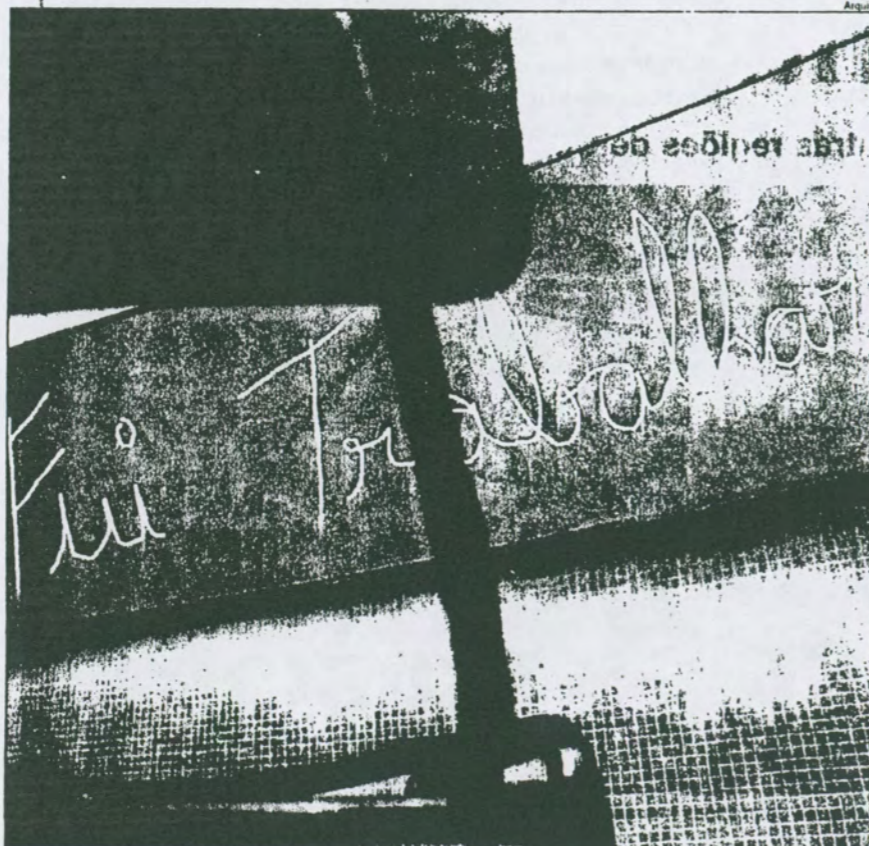 Arqui
trás regiões de
Fui Trabalhar